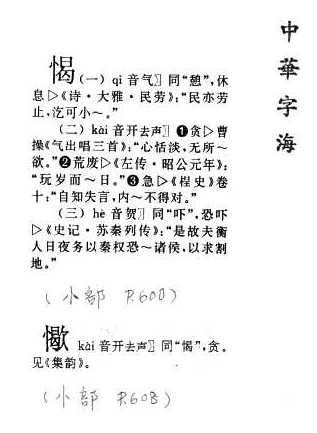 中華字海
愒(一) qì 音气〗同“憩”,休
息▷《诗·大雅·民劳》:“民亦劳
止,汔可小～。”
(二) kài 音开去声〗❶贪▷曹
操《气出唱三首》:“心恬淡,无所～
欲。”❷荒废▷《左传·昭公元年》:
“玩岁而～日。”❸急▷《桯史》卷
十:“自知失言,内～不得对。”
(三) hè 音贺〗同“吓”,恐吓
▷《史记·苏秦列传》:“是故夫衡
人日夜务以秦权恐～诸侯,以求割
地。”
(小部 P.600)
kài 音开去声〗同“愒”,贪。
见《集韵》。
(小部 P.608)